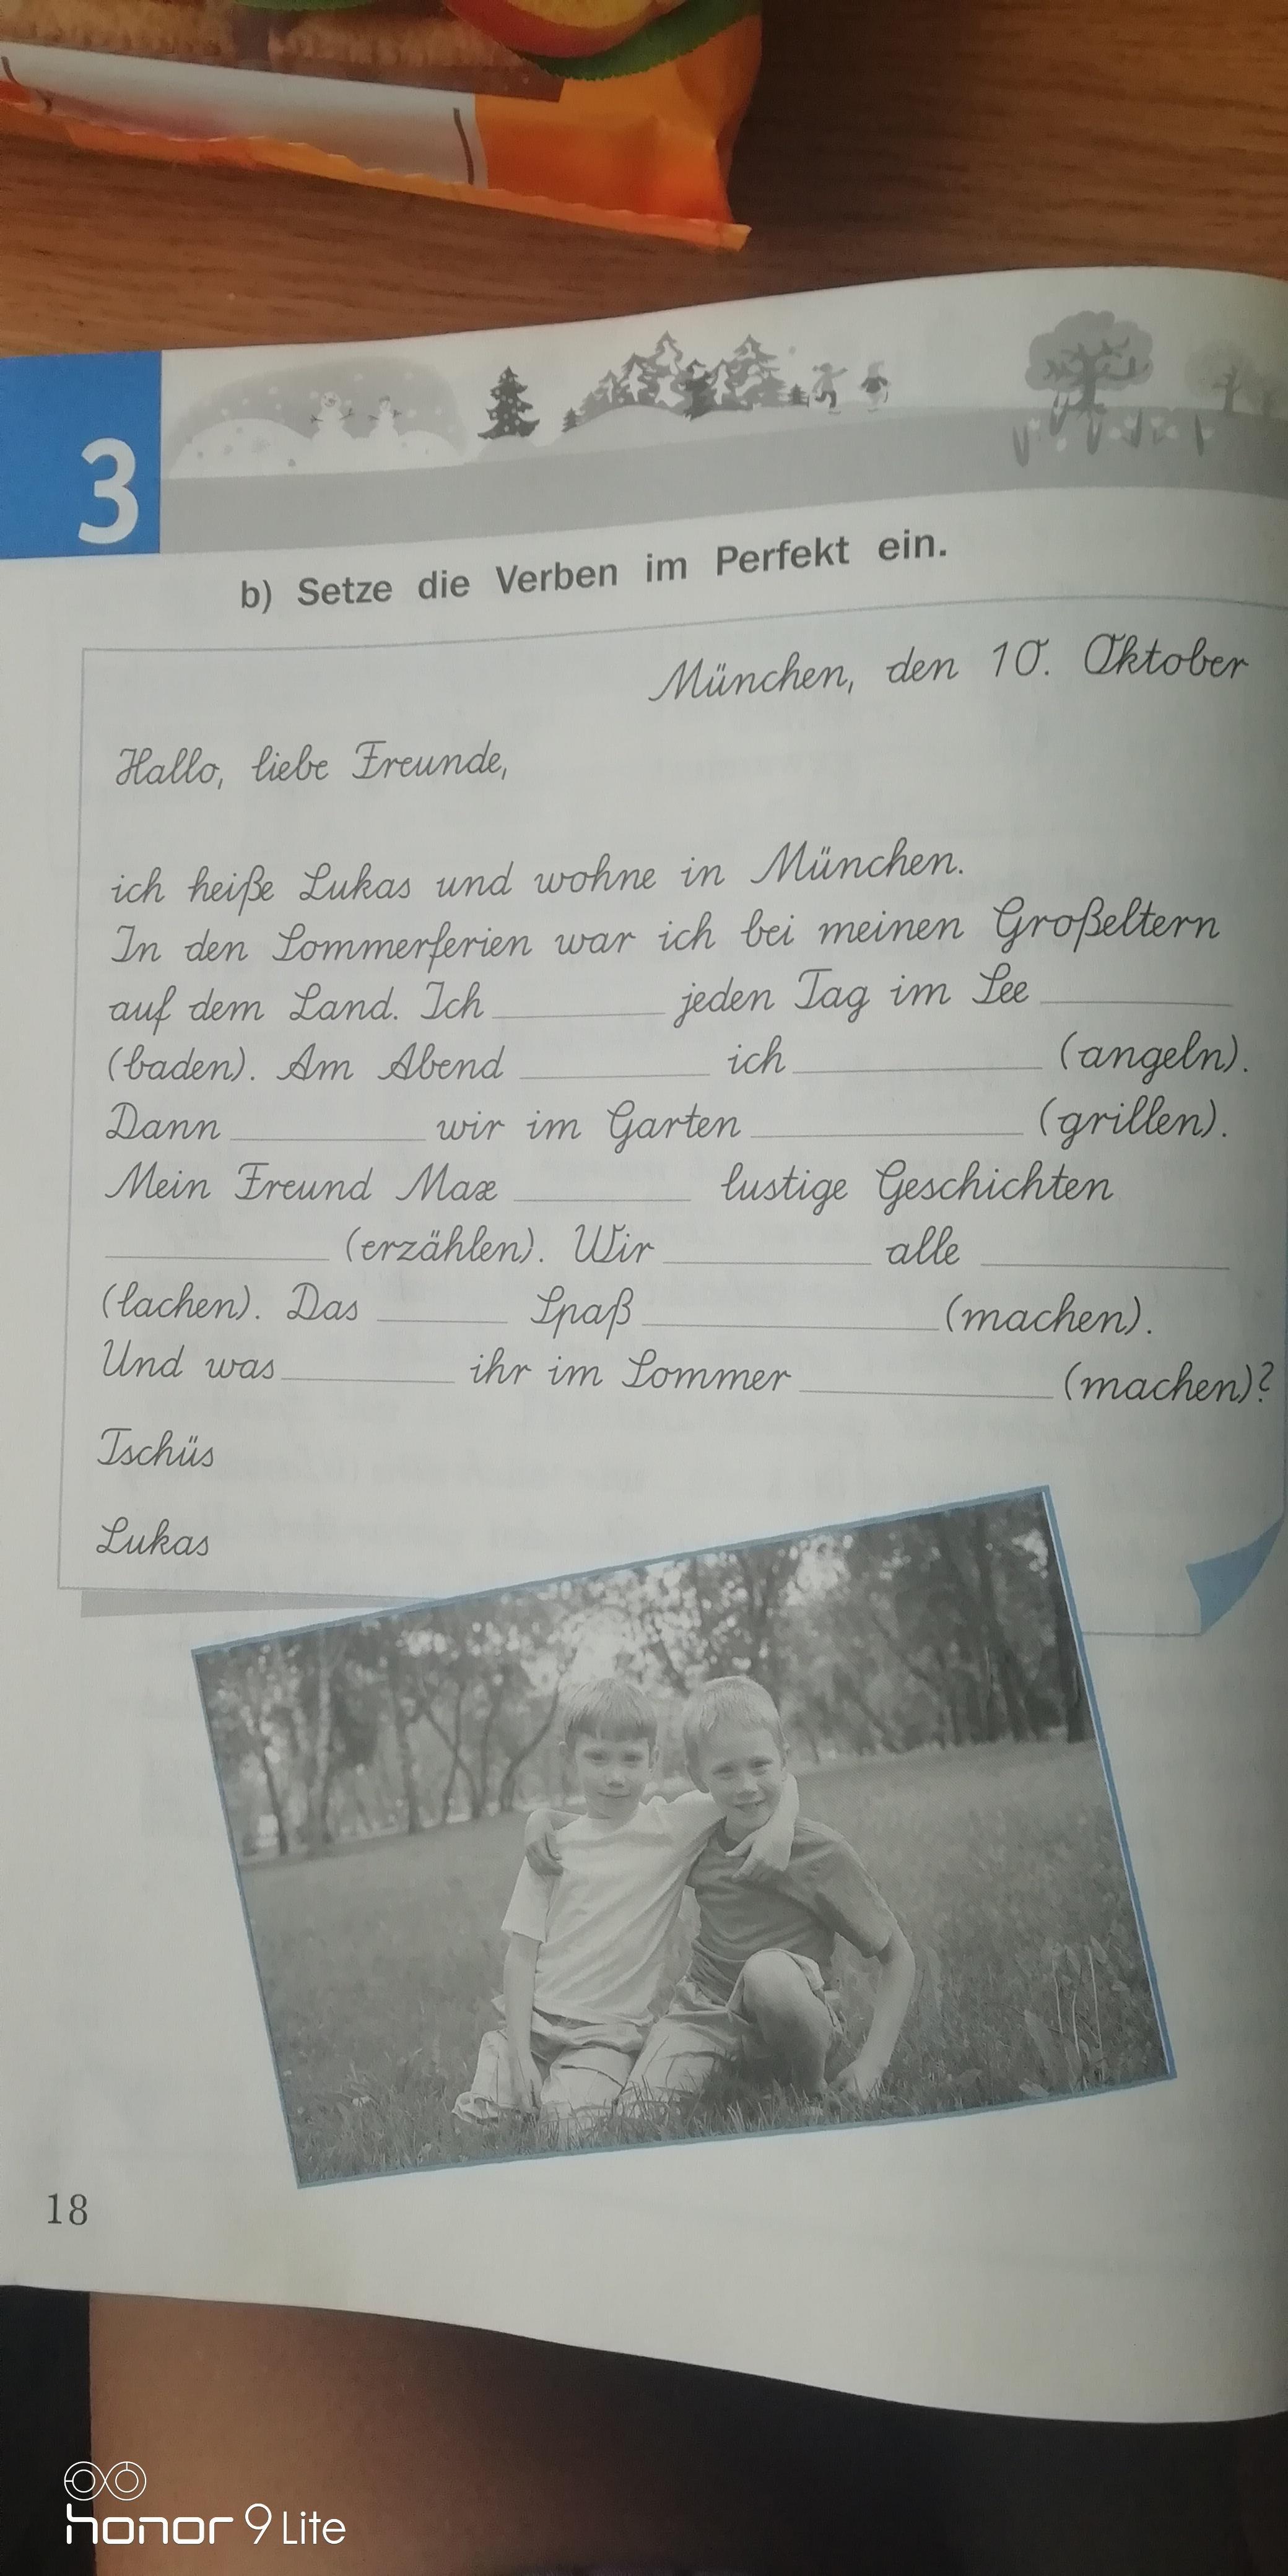 3
b) Setze die Verben im Perfekt ein.
München, den 10. Oktober
Hallo, liebe Freunde,
ich heiße Lukas und wohne in München.
In den Sommerferien war ich bei meinen Großeltern
auf dem Land. Ich ______ jeden Tag im See ______
(baden). Am Abend ______ ich ______ (angeln).
Dann ______ wir im Garten ______ (grillen).
Mein Freund Max ______ lustige Geschichten
______ (erzählen). Wir ______ alle ______
(lachen). Das ______ Spaß ______ (machen).
Und was ______ ihr im Sommer ______ (machen)?
Tschüs
Lukas
18
honor 9 Lite